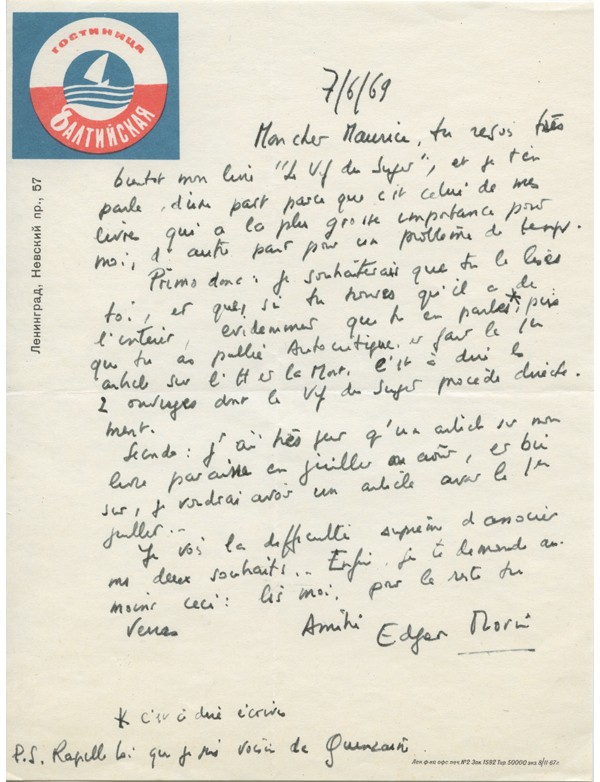 ГОСТИНИЦА
БАЛТИЙСКАЯ
Ленинград, Невский пр., 57
7/6/69
Mon cher Maurice, tu reçois très
bientot mon livre "Le Vif du Sujet", et je t'en
parle, d'une part parce que c'est celui de mes
livres qui a la plus grosse importance pour
moi, d'autre part pour un problème de temps.
Primo donc : je souhaiterais que tu le lises
toi, et que, si tu trouves qu'il a de
l'intérêt, evidemment que tu en parles*, puis
que tu as publié Autocritique et fait le 1er
article sur l'H et la Mort, c'est à dire les
2 ouvrages dont le Vif du Sujet procède directe-
ment.
Secundo : j'ai très peur qu'un article sur mon
livre paraisse en juillet ou août, et bien
sur, je voudrai avoir un article avant le 1er
juillet..
Je vois la difficulté suprême d'associer
mes deux souhaits... Enfin, je te demande au
moins ceci : lis moi, pour le reste tu
verras
Amitié Edgar Morin
* c'est à dire écrives
P.S. Rappelle toi que je suis voisin de
Лен. ф-ка офс. печ. №2 Зак. 1592 Тир. 50000 экз. 8/II-67 г.